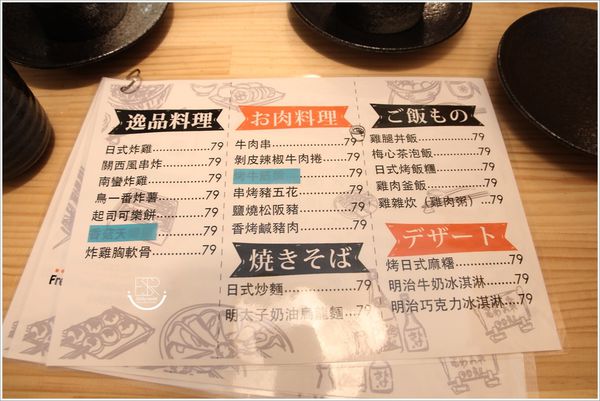 逸品料理
日式炸雞..........79
關西風串炸......79
南蠻炸雞..........79
鳥一番炸薯......79
起司可樂餅......79
79
炸雞胸軟骨......79
お肉料理
牛肉串..................79
剝皮辣椒牛肉捲...79
79
串烤豬五花..........79
鹽燒松阪豬..........79
香烤鹹豬肉..........79
焼きそば
日式炒麵..............79
明太子奶油烏龍麵...79
ご飯もの
雞腿丼飯..............79
梅心茶泡飯..........79
日式烤飯糰..........79
雞肉釜飯..............79
雞雜炊（雞肉粥）...79
デザート
烤日式麻糬..........79
明治牛奶冰淇淋....79
明治巧克力冰淇淋....79
Fre